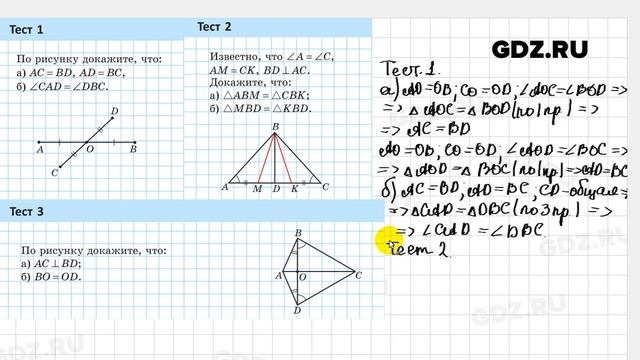 Тест 1
По рисунку докажите, что:
а) AC = BD, AD = BC,
б) ∠CAD = ∠DBC.
D
A
O
B
C
Тест 2
Известно, что ∠A = ∠C,
AM = CK, BD ⊥ AC.
Докажите, что:
а) △ABM = △CBK;
б) △MBD = △KBD.
B
A M D K C
Тест 3
По рисунку докажите, что:
а) AC ⊥ BD;
б) BO = OD.
B
A
O
C
D
GDZ.RU
Тест. 1.
а) AO=OB; CO=OD; ∠AOC=∠BOD =>
=> △AOC = △BOD (по 1 пр.) =>
=> AC = BD
AO=OB, CO=OD, ∠AOD=∠BOC =>
=> △AOD = △BOC (по 1 пр) => AD=BC
б) AC=BD, AD=BC, CD-общая =>
=> △CAD = △DBC (по 3 пр.) =>
=> ∠CAD = ∠DBC.
Тест 2.
GDZ.RU
GDZ.RU